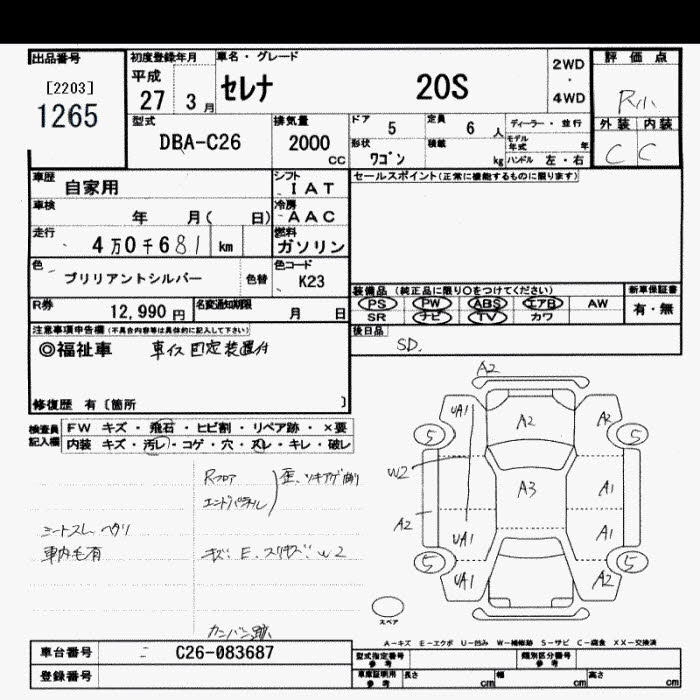 出品番号 初度登録年月 車名・グレード 評価点
[2203] 平成 セレナ 20S 2WD・4WD
1265 27 3月 R小
型式 排気量 ドア 定員 ディーラー・並行 外装 内装
DBA-C26 2000 CC 5 6人 モデル年式 年 C C
形状 積載
ワゴン kg ハンドル 左・右
車歴 自家用 シフト IAT セールスポイント(正常に機能するものに限ります)
車検 年 月( 日) 冷房 AAC
走行 4万0千681 km 燃料 ガソリン
色 ブリリアントシルバー 色替 色コード K23
装備品 (純正品に限り○をつけてください) 新車保証書
R券 12,990円 名変通知期限 月 日 PS PW ABS エアB AW 有・無
SR ナビ TV カワ
注意事項申告欄(不具合内容等は具体的に記入して下さい) 後日品
◎福祉車 車イス固定装置付 SD.
修復歴 有〔箇所 〕
検査員記入欄 FW キズ・飛石・ヒビ割・リペア跡・×要
内装 キズ・汚レ・コゲ・穴・スレ・キレ・破レ
A2
UA1 A2 A2
5 5
Rフロア
エンドパネル
W2 A3 A1
シートスレ ヘタリ A2
車内毛有 キズ E.スリキズ W2 UA1 A1
5 5
UA1 A2
スペア
カンバン跡
A-キズ E-エクボ U-凹み W-補修跡 S-サビ C-腐食 XX-交換済
車台番号 C26-083687 型式指定番号 参考 類別区分番号 参考
登録番号 車庫証明用 参考 長さ cm 幅 cm 高さ cm